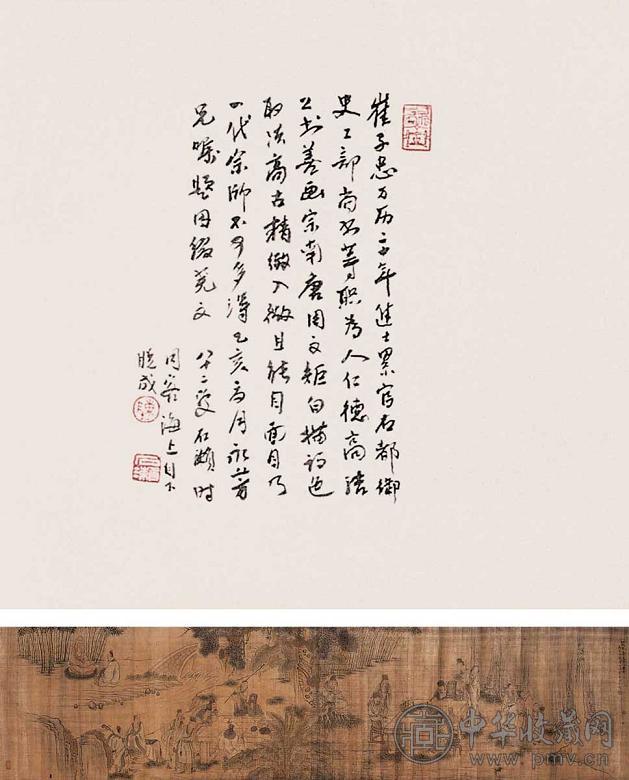 崔子忠万历年進士累官右都御
史工部尚书等职为人仁德高洁
工书善画宗南唐周文矩白描
取法高古精微入微且能自面目乃
一代宗师不可多得乙亥月永芳
兄嘱题因缀芜文 八十二叟石濑时
同客海上目下
中华收藏网
www.pmv.cn